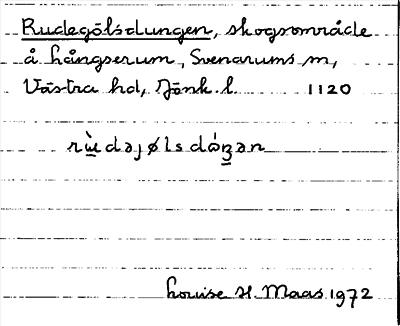 Rudegölsdungen, skogsområde
å hångserum, Svenarums sn,
Västra hd, Jönk. l. 1120
rùdəjølsdóŋən
Louise H. Maas 1972